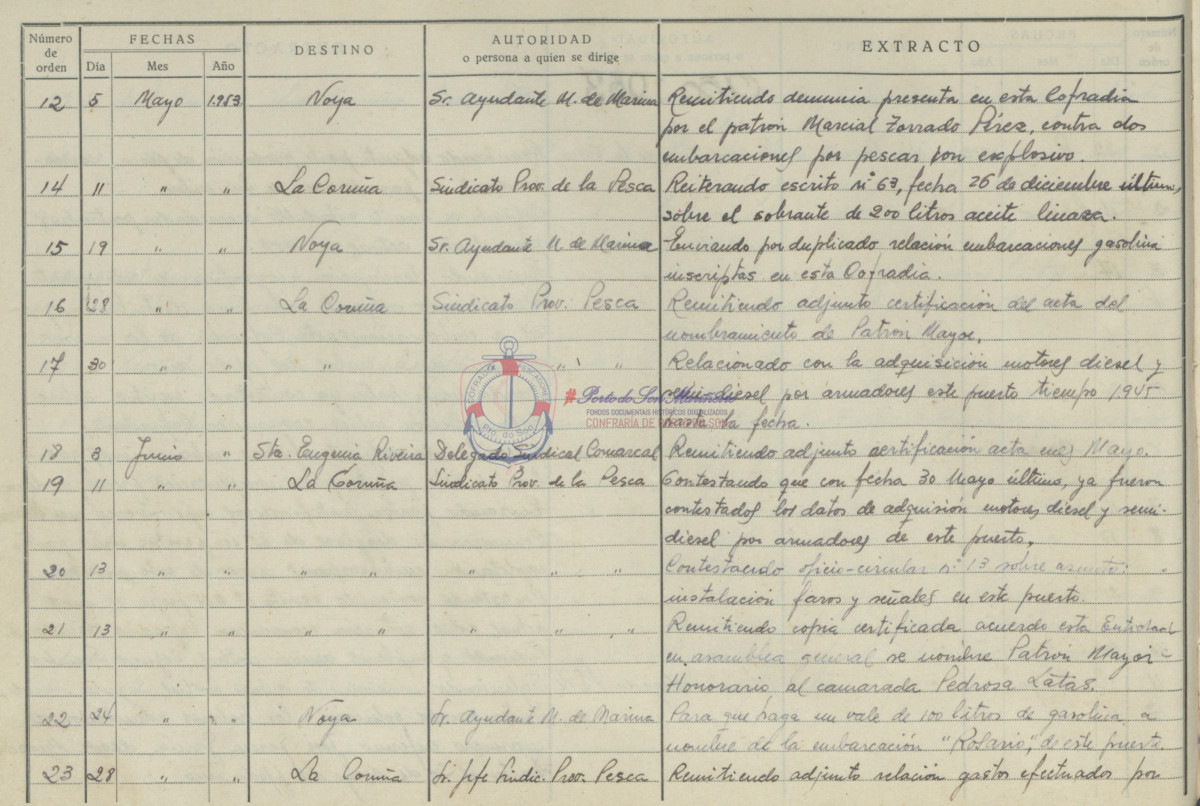 Número de orden FECHAS DESTINO AUTORIDAD o persona a quien se dirige EXTRACTO
Día Mes Año
12 5 Mayo 1.953 Noya Sr. Ayudante M. de Marina Remitiendo denuncia presenta en esta Cofradia
por el patrón Marcial Torrado Pérez, contra dos
embarcaciones por pescar con explosivo.
14 11 " " La Coruña Sindicato Prov. de la Pesca Reiterando escrito nº 63, fecha 26 de diciembre último,
sobre el sobrante de 200 litros aceite linaza.
15 19 " " Noya Sr. Ayudante M. de Marina Enviando por duplicado relación embarcaciones gasolina
inscriptas en esta Cofradia.
16 28 " " La Coruña Sindicato Prov. Pesca Remitiendo adjunto certificación del acta del
nombramiento de Patrón Mayor.
17 30 " " " " " " Relacionado con la adquisición motores diesel y
semi-diesel por armadores este puerto tiempo 1945
hasta la fecha.
COFRADÍA PESCADORES
Pto. do Son
#Porto do Son
FONDOS DOCUMENTAIS HISTÓRICOS DIXITALIZADOS
CONFRARÍA DE PORTO DO SON
18 3 Junio " Sta. Eugenia Riveira Delegado Sindical Comarcal Remitiendo adjunto certificación acta mes Mayo.
19 11 " " La Coruña Sindicato Prov. de la Pesca Contestando que con fecha 30 Mayo último, ya fueron
contestados los datos de adquisión motores diesel y semi-
diesel por armadores de este puerto.
20 13 " " " " " " " Contestando oficio-circular nº 13 sobre asunto:
instalación faros y señales en este puerto.
21 13 " " " " " " " Remitiendo copia certificada acuerdo esta Entidad
en asamblea general se nombre Patrón Mayor
Honorario al camarada Pedrosa Latas.
22 24 " " Noya Sr. Ayudante M. de Marina Para que haga un vale de 100 litros de gasolina a
nombre de la embarcación "Rosario", de este puerto.
23 28 " " La Coruña Sr. Jefe Sindic. Prov. Pesca Remitiendo adjunto relación gastos efectuados por